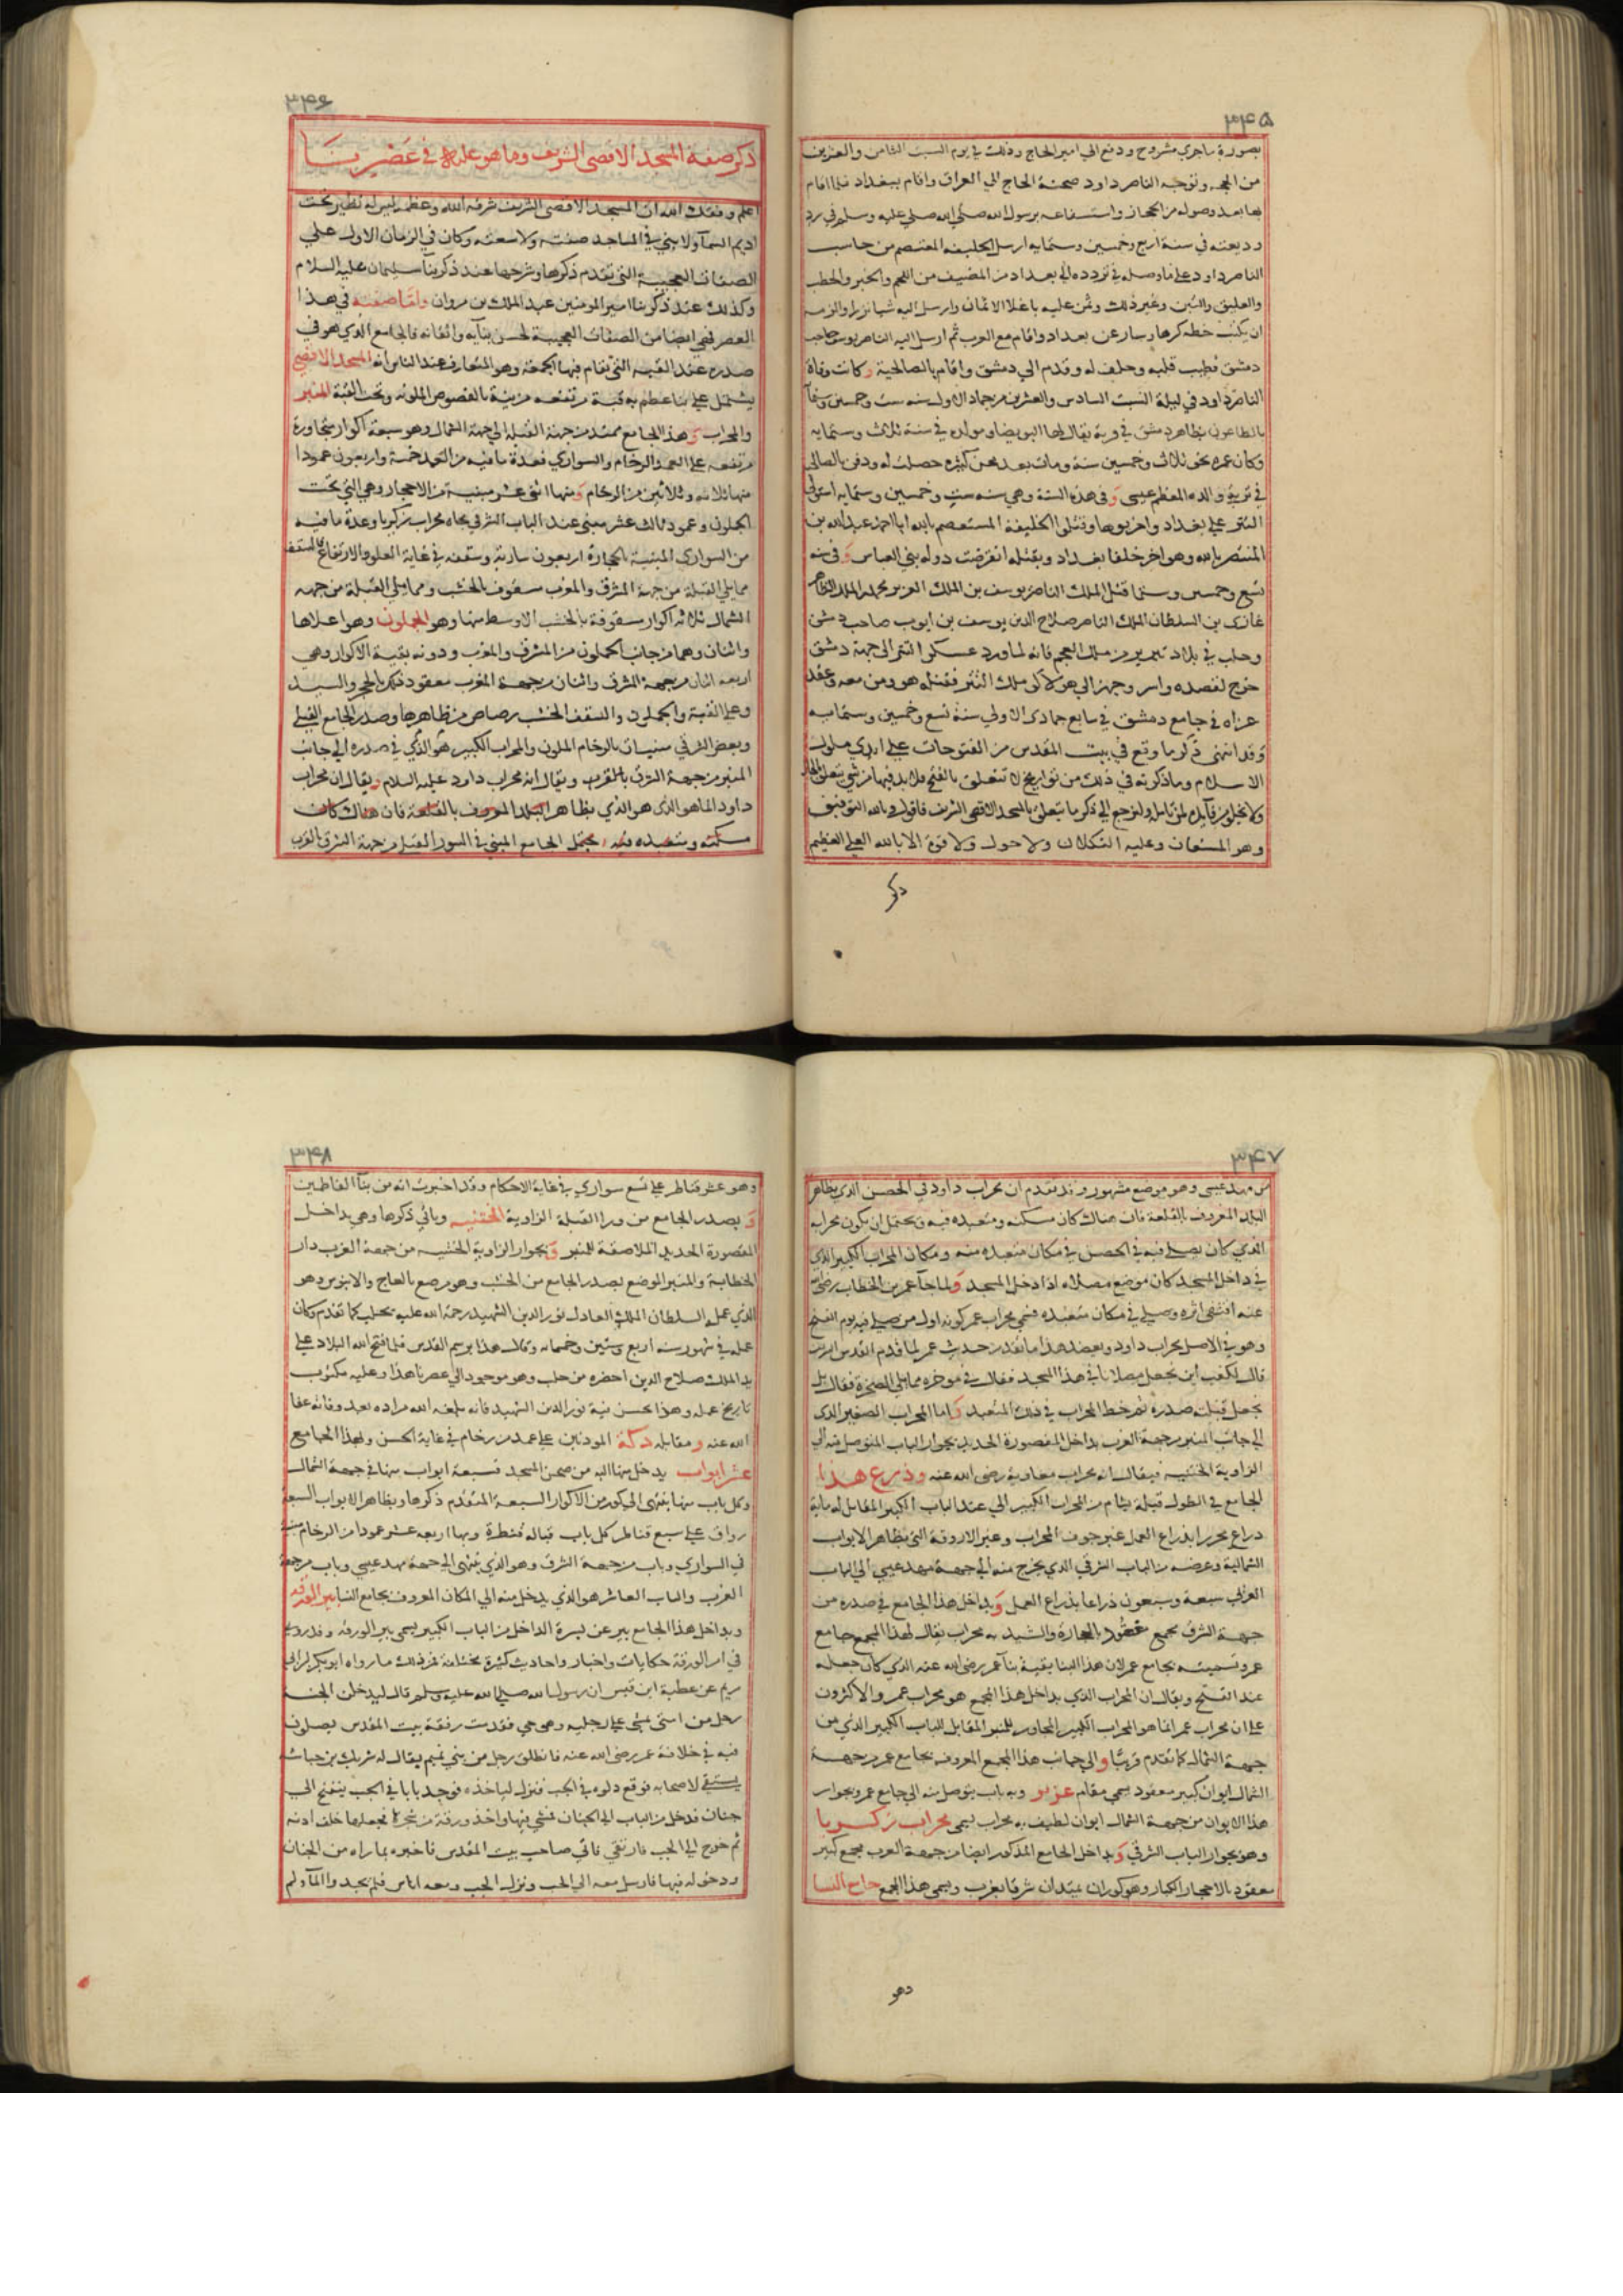 ٣٤٥
بصورة ماجري مشروح ودفع الي امير الحاج وذلك في يوم السبت الثامن والعشرين
من الحجه وتوجه الناصر داود صحبة الحاج الي العراق واقام ببغداد فلما اقام
بها بعد وصوله من الحجاز واستشفاعه برسول الله صلي الله عليه وسلم في رد
وديعته في سنة اربع وخمسين وستمايه ارسل الخليفه المعتصم من حاسب
الناصر داود علي ما وصله في تردده الي بغداد من المضيف من اللحم والخبز والحطب
والعليق والتبن وغير ذلك وثمن عليه باغلا الاثمان وارسل اليه شيا نزرا والزمه
ان يكتب خطه كرها وسار عن بغداد واقام مع العرب ثم ارسل اليه الناصر يوسف صاحب
دمشق فطيب قلبه وحلف له وقدم الي دمشق واقام بالصالحية وكانت وفاة
الناصر داود في ليلة السبت السادس والعشرين من جماد الاول سنه ست وخمسين وستمآ
بالطاعون بظاهر دمشق في قرية يقال لها البويضا ومولده في سنة ثلاث وستمايه
وكان عمره نحو ثلاث وخمسين سنة ومات بعد محن كثيره حصلت له ودفن بالصالحي
في تربة والده المعظم عيسى وفي هذه السنة وهي سنه ست وخمسين وستمايه استولي
التتر علي بغداد واخربوها وقتلوا الخليفة المستعصم بالله ابا احمد عبد الله بن
المنتصر بالله وهو اخر خلفا بغداد وبقتله انقرضت دولة بني العباس وفي سنه
تسع وخمسين وستما قتل الملك الناصر يوسف بن الملك العزيز محمد الملك الظاهر
غازي بن السلطان الملك الناصر صلاح الدين يوسف بن ايوب صاحب دمشق
وحلب في بلاد تبريز من ملك العجم فانه لما ورد عسكر التتر الي جهة دمشق
خرج لقصده واسر وجهز الي هولاكو ملك التتر فقتله هو ومن معه وعقد
عزاه في جامع دمشق في سابع جمادي الاولي سنة تسع وخمسين وستمايه
وقد انتهى ذكر ما وقع في بيت المقدس من الفتوحات علي ايدي ملوك
الاسلام وما ذكرته في ذلك من تواريخ لا تتعلق بالفتح فلا بد فيها من شي يتعلق
ولا تخلو من فايده لمن تاملها ولنرجع الي ذكر ما يتعلق بالمسجد الاقصي الشريف فاقول وبالله التوفيق
وهو المستعان وعليه التكلان ولا حول ولا قوة الا بالله العلي العظيم
ذكر
٣٤٦
ذكر صفة المسجد الاقصى الشريف وما هو عليه في عصرنا
اعلم وفقك الله ان المسجد الاقصي الشريف شرفه الله وعظمه ليس له نظير تحت
اديم السمآ ولا بني في المساجد صفته ولا سعته وكان في الزمان الاول علي
الصفات العجيبة التي تقدم ذكرها وشرحها عند ذكر بنآ سليمان عليه السلام
وكذلك عند ذكر بنا امير المومنين عبد الملك بن مروان واما صفته في هذا
العصر فهي ايضا من الصفات العجيبة لحسن بنآيه واتقانه فالجامع الذي هو في
صدره عند القبلة التي تقام فيها الجمعة وهو المتعارف عند الناس انه المسجد الاقصي
يشتمل علي بنا عظيم به قبة مرتفعه مزينة بالفصوص الملونه وتحت القبة المنبر
والمحراب وهذا الجامع ممتد من جهة القبلة الي جهة الشمال وهو سبعة اكوار متجاورة
مرتفعه علي العمد الرخام والسواري فعدة ما فيه من العمد خمسة واربعون عمودا
منها ثلاثه وثلاثين من الرخام ومنها اثني عشر مبنيه من الاحجار وهي التي تحت
الجملون وعمود ثالث عشر مبني عند الباب الشرقي تجاه محراب زكريا وعدة ما فيه
من السواري المبنية بالحجارة اربعون سارية وسقفه في غاية العلو والارتفاع فالسقف
مما يلي القبلة من جهة المشرق والمغرب مسقوف بالخشب ومما يلي القبلة من جهه
الشمال ثلاثه اكوار مسقوفة بالخشب الاوسط منها وهو الجملون وهو اعلاها
واثنان وهما من جانب الجملون من المشرق والمغرب ودونه بقية الاكوار وهي
اربعه اثنان من جهة المشرق واثنان من جهة المغرب معقود ذلك بالحجر والشيد
وعلي القبة والجملون والسقف الخشب رصاص من ظاهرها وصدر الجامع القبلي
وبعض الشرقي مبنيان بالرخام الملون والمحراب الكبير هو الذي في صدره الي جانب
المنبر من جهة الشرق بالقرب ويقال انه محراب داود عليه السلام ويقال ان محراب
داود انما هو الذي هو الذي بظاهر البلد المعروف بالقلعة فان هناك كان
مسكنه ومتعبده فيه يحتمل الجامع المبني في السور القبلي من جهة الشرق بالقرب
٣٤٧
من مهد عيسى وهو موضع مشهور وقد تقدم ان محراب داود في الحصن الذي بظاهر
البلد المعروف بالقلعة فان هناك كان مسكنه ومتعبده فيه ويحتمل ان يكون محرابه
الذي كان يصلي فيه في الحصن في مكان متعبده منه ومكان المحراب الكبير الذي
في داخل المسجد كان موضع مصلاه اذا دخل المسجد ولما جآ عمر بن الخطاب رضي الله
عنه اقتفى اثره وصلي في مكان متعبده فسمي محراب عمر كونه اول من صلي فيه يوم الفتح
وهو في الاصل محراب داود ويعضد هذا ما تقدم من حديث عمر لما قدم القدس الشريف
قال لكعب اين نجعل مصلانا في هذا المسجد فقال في موخره مما يلي الصخرة فقال بل
نجعل قبلته صدره ثم خط المحراب في ذلك المتعبد واما المحراب الصغير الذي
الي جانب المنبر من جهة الغرب بداخل المقصورة الحديد بجوار الباب المتوصل منه الي
الزاوية الخنثيه فيقال انه محراب معاوية رضي الله عنه وذرع هذا
الجامع في الطول قبلة بشام من المحراب الكبير الي عتبة الباب الكبير المقابل له ماية
ذراع محررا بذراع العمل غير جوف المحراب وغير الاروقة التي بظاهر الابواب
الشمالية وعرضه من الباب الشرقي الذي يخرج منه الي جهة مهد عيسى الي الباب
الغربي سبعة وسبعون ذراعا بذراع العمل وبداخل هذا الجامع في صدره من
جهة الشرق مجمع معقود بالحجارة والشيد به محراب يقال لهذا المجمع جامع
عمر وتسميته بجامع عمر لان هذا البنا بقية بنآ عمر رضي الله عنه الذي كان جعله
عند الفتح ويقال ان المحراب الذي بداخل هذا المجمع هو محراب عمر والاكثرون
علي ان محراب عمر انما هو المحراب الكبير المجاور للمنبر المقابل للباب الكبير الذي من
جهة الشمال كما تقدم قريبا والي جانب هذا المجمع المعروف بجامع عمر من جهة
الشمال ايوان كبير معقود يسمي مقام عزير وبه باب يتوصل منه الي جامع عمر وبجوار
هذا الايوان من جهة الشمال ايوان لطيف به محراب يسمى محراب زكريا
وهو بجوار الباب الشرقي وبداخل الجامع المذكور ايضا من جهة الغرب مجمع كبير
معقود بالاحجار الكبار وهو كوران ممتدان شرقا بغرب ويسمى هذا المجمع جامع النسا
وهو
٣٤٨
وهو عشر قناطر علي تسع سواري في غاية الاحكام وقد اخبرت انه من بنآ الفاطميين
وبصدر الجامع من ورا القبلة الزاوية الخنثنيه وياتي ذكرها وهي بداخل
المقصورة الحديد الملاصقة للمنبر وبجوار الزاوية الخنثيه من جهة الغرب دار
الخطابة والمنبر الموضع بصدر الجامع من الخشب وهو مرصع بالعاج والابنوس وهو
الذي عمله السلطان الملك العادل نور الدين الشهيد رحمة الله عليه بحلب كما تقدم وكان
عمله في شهور سنه اربع وستين وخمسمايه وقال هذا برسم القدس فلما فتح الله البلاد علي
يد الملك صلاح الدين احضره من حلب وهو موجود الي عصرنا هذا وعليه مكتوب
تاريخ عمله وهذا بحسن نية نور الدين الشهيد فانه بلغه الله مراده بعد وفاته عفا
الله عنه ومقابله دكة الموذنين علي عمد من رخام في غاية الحسن ولهذا الجامع
عشر ابواب يدخل منها اليه من صحن المسجد فسبعة ابواب منها في جهة الشمال
وكل باب منها ينتهي الي كور من الاكوار السبعة المتقدم ذكرها وبظاهر الابواب السبعة
رواق علي سبع قناطر كل باب قباله قنطرة وبها اربعه عشر عمودا من الرخام مبنية
في السواري وباب من جهة الشرق وهو الذي ينتهي الي جهة مهد عيسى وباب من جهة
الغرب والباب العاشر هو الذي يدخل منه الي المكان المعروف بجامع النسا بير الورقه
وبداخل هذا الجامع بير عن يسرة الداخل من الباب الكبير يسمى بير الورقه وقد روي
في امر الورقة حكايات واخبار واحاديث كثيرة مختلفة فمن ذلك ما رواه ابو بكر ابن ابي
مريم عن عطية ابن قيس ان رسول الله صلي الله عليه وسلم قال ليدخلن الجنه
رجل من امتي يمشي علي رجليه وهو حي فقدمت رفقة بيت المقدس يصلون
فيه في خلافة عمر رضي الله عنه فانطلق رجل من بني تميم يقال له شريك بن حباشه
يستقي لاصحابه فوقع دلوه في الجب فنزل لياخذه فوجد بابا في الجب ينفتح الي
جنان فدخل من الباب الي الجنان فمشي فيها واخذ ورقة من شجرها فجعلها خلف اذنه
ثم خرج الي الجب فارتقي فاتي صاحب بيت المقدس فاخبره بما راه من الجنان
ودخوله فيها فارسل معه الي الجب ونزل الجب ومعه اناس فلم يجدوا